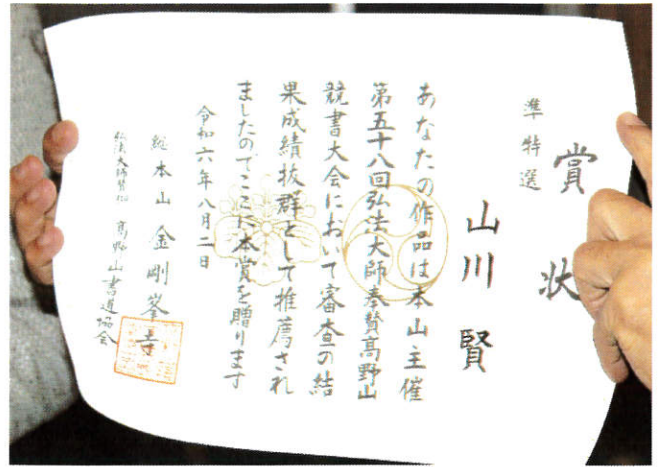 賞状
準特選
山川賢
あなたの作品は本山主催
第五十八回弘法大師奉賛高野山
競書大会において審査の結
果成績抜群として推薦され
ましたのでここに本賞を贈ります
令和六年八月二日
総本山金剛峯寺
弘法大師賛仰高野山書道協会